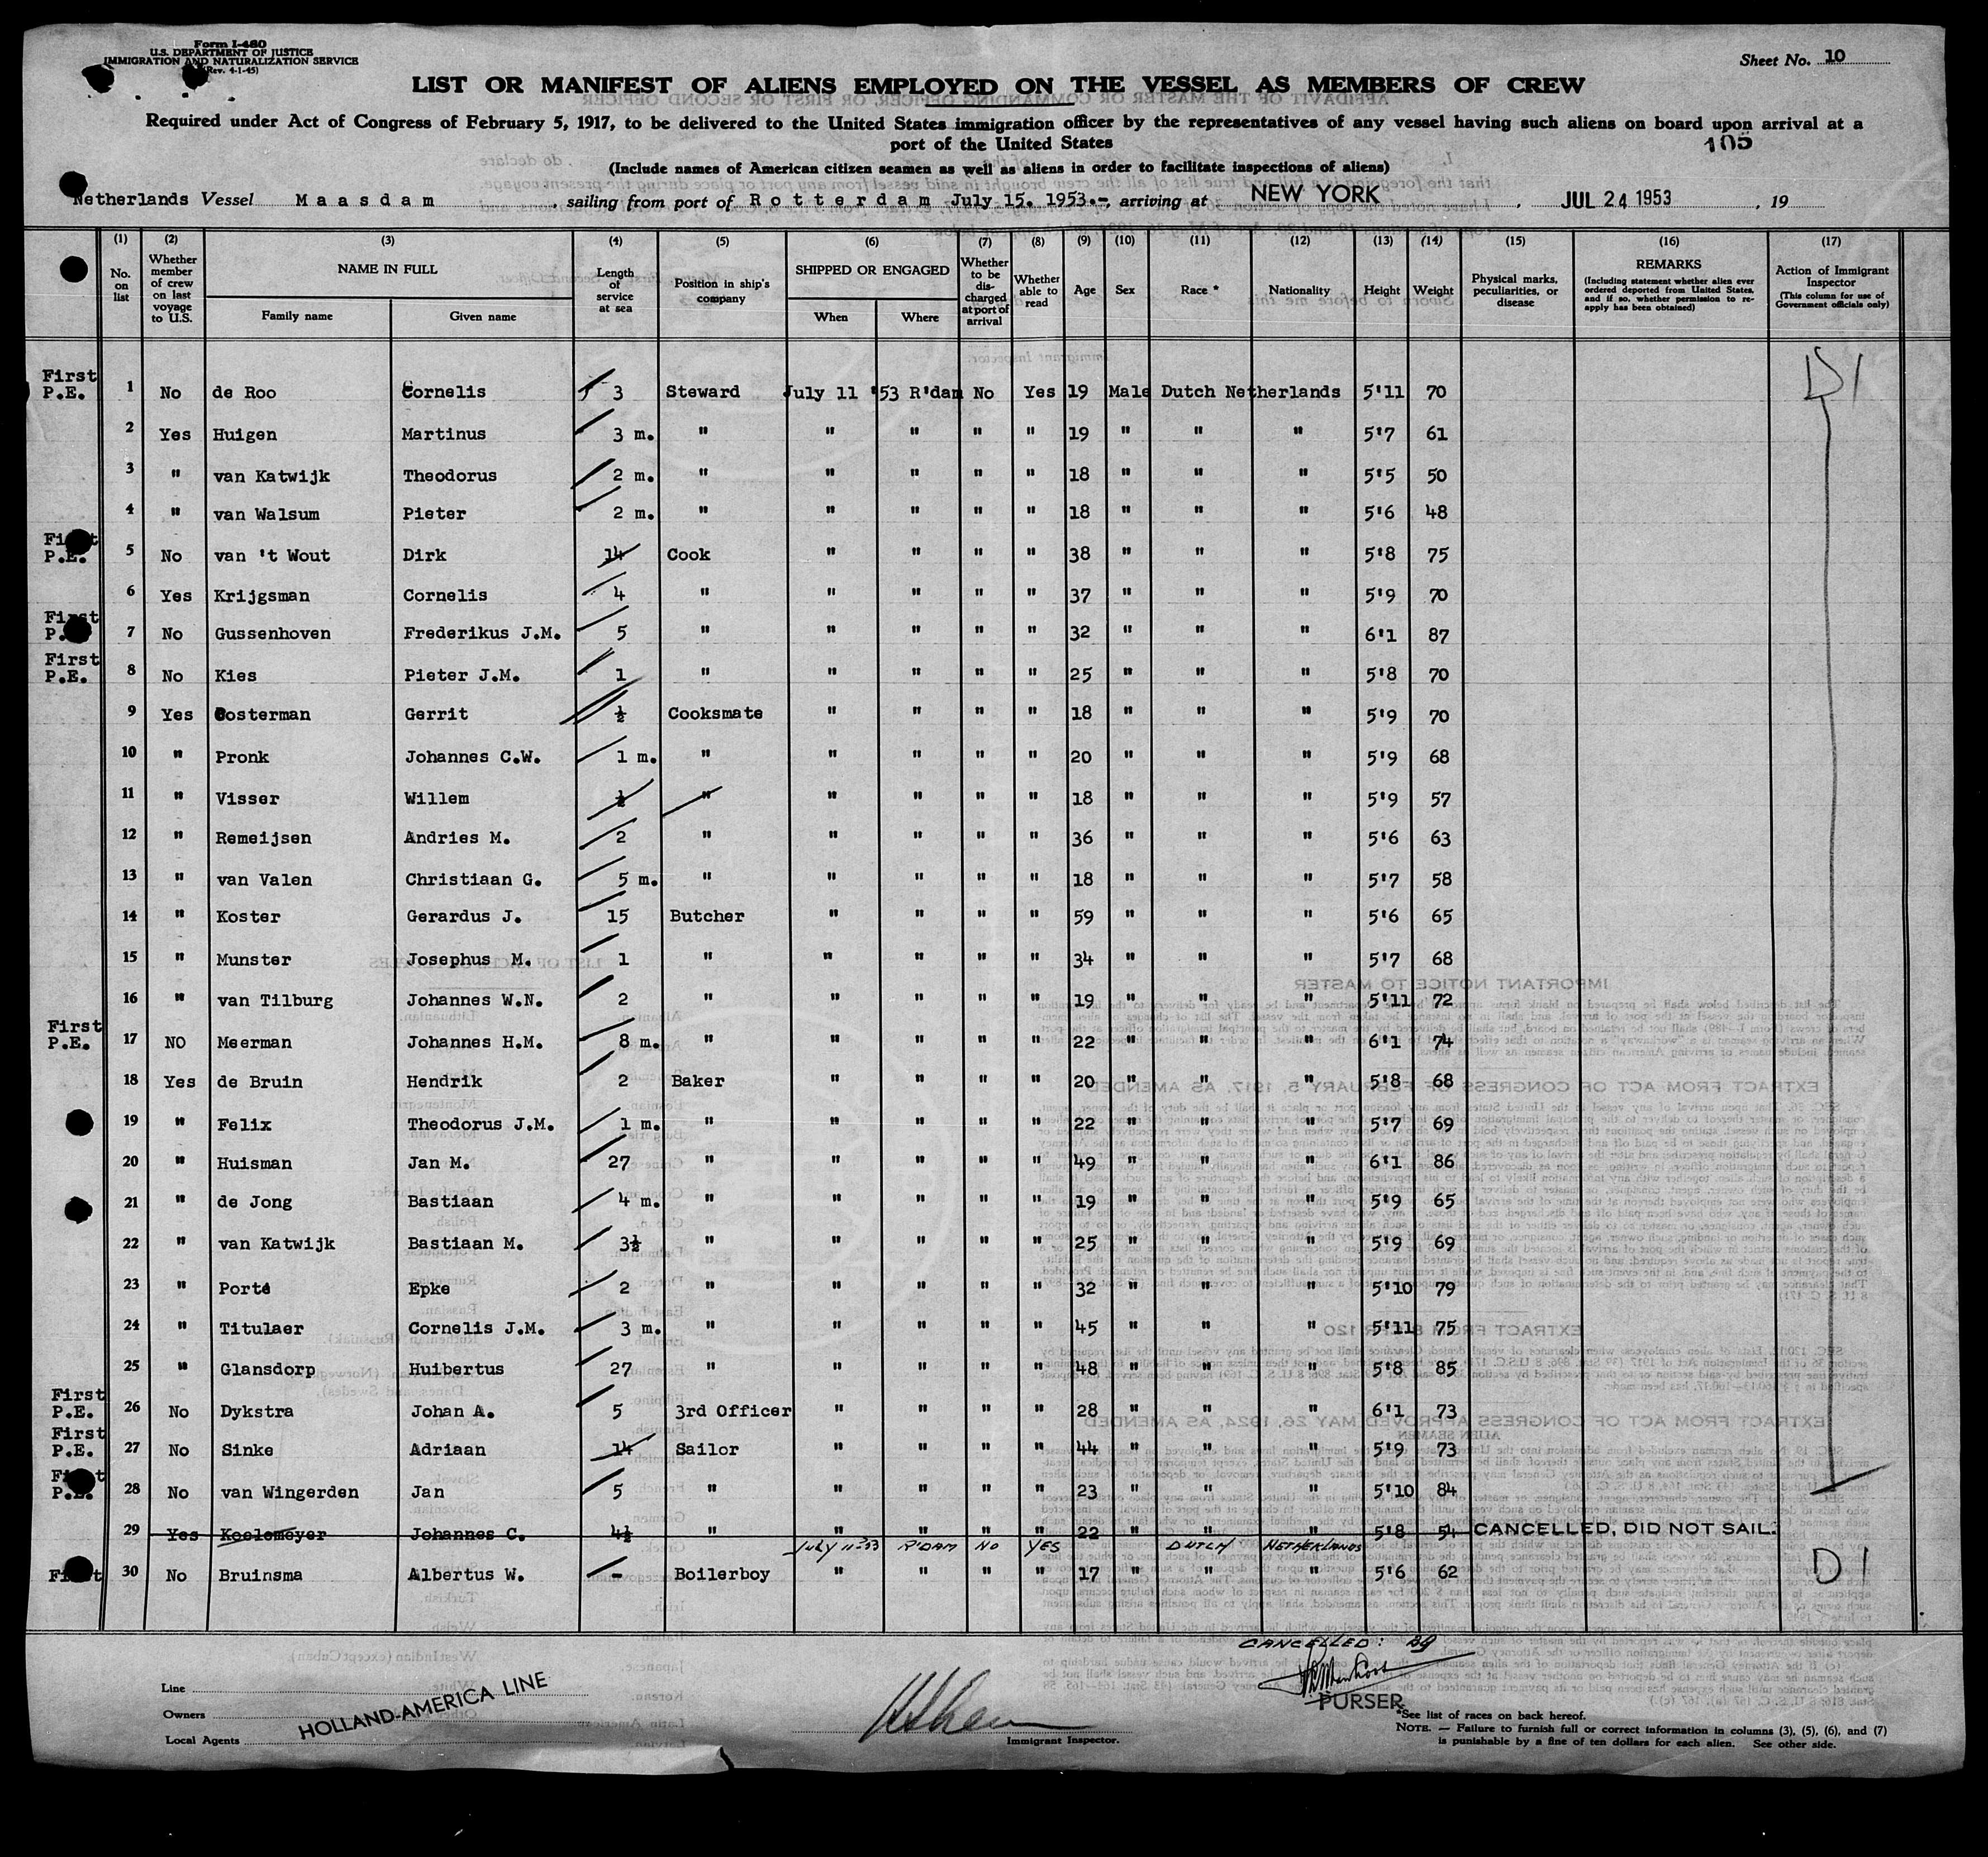 Form I-480
U.S. DEPARTMENT OF JUSTICE
IMMIGRATION AND NATURALIZATION SERVICE
(Rev. 4-1-45)
Sheet No. 10
LIST OR MANIFEST OF ALIENS EMPLOYED ON THE VESSEL AS MEMBERS OF CREW
Required under Act of Congress of February 5, 1917, to be delivered to the United States immigration officer by the representatives of any vessel having such aliens on board upon arrival at a
port of the United States
105
(Include names of American citizen seamen as well as aliens in order to facilitate inspections of aliens)
Netherlands Vessel Maasdam, sailing from port of Rotterdam July 15. 1953.-, arriving at NEW YORK, JUL 24 1953, 19
(1) (2) (3) (4) (5) (6) (7) (8) (9) (10) (11) (12) (13) (14) (15) (16) (17)
No. on list | Whether member of crew on last voyage to U.S. | NAME IN FULL Family name Given name | Length of service at sea | Position in ship's company | SHIPPED OR ENGAGED When Where | Whether to be discharged at port of arrival | Whether able to read | Age | Sex | Race * | Nationality | Height | Weight | Physical marks, peculiarities, or disease | REMARKS (Including statement whether alien ever ordered deported from United States, and if so, whether permission to re-apply has been obtained) | Action of Immigrant Inspector (This column for use of Government officials only)
First P.E. 1 No de Roo Cornelis 3 Steward July 11 '53 R'dam No Yes 19 Male Dutch Netherlands 5'11 70 D1
2 Yes Huigen Martinus 3 m. " " " " " 19 " " " 5'7 61
3 " van Katwijk Theodorus 2 m. " " " " " 18 " " " 5'5 50
4 " van Walsum Pieter 2 m. " " " " " 18 " " " 5'6 48
First P.E. 5 No van 't Wout Dirk 14 Cook " " " " 38 " " " 5'8 75
6 Yes Krijgsman Cornelis 4 " " " " " 37 " " " 5'9 70
First P.E. 7 No Gussenhoven Frederikus J.M. 5 " " " " " 32 " " " 6'1 87
First P.E. 8 No Kies Pieter J.M. 1 " " " " " 25 " " " 5'8 70
9 Yes Oosterman Gerrit ½ Cooksmate " " " " 18 " " " 5'9 70
10 " Pronk Johannes C.W. 1 m. " " " " " 20 " " " 5'9 68
11 " Visser Willem ½ " " " " " 18 " " " 5'9 57
12 " Remeijsen Andries M. 2 " " " " " 36 " " " 5'6 63
13 " van Valen Christiaan G. 5 m. " " " " " 18 " " " 5'7 58
14 " Koster Gerardus J. 15 Butcher " " " " 59 " " " 5'6 65
15 " Munster Josephus M. 1 " " " " " 34 " " " 5'7 68
16 " van Tilburg Johannes W.N. 2 " " " " " 19 " " " 5'11 72
First P.E. 17 NO Meerman Johannes H.M. 8 m. " " " " " 22 " " " 6'1 74
18 Yes de Bruin Hendrik 2 Baker " " " " 20 " " " 5'8 68
19 " Felix Theodorus J.M. 1 m. " " " " " 22 " " " 5'7 69
20 " Huisman Jan M. 27 " " " " " 49 " " " 6'1 86
21 " de Jong Bastiaan 4 m. " " " " " 19 " " " 5'9 65
22 " van Katwijk Bastiaan M. 3½ " " " " " 25 " " " 5'9 69
23 " Porté Epke 2 " " " " " 32 " " " 5'10 79
24 " Titulaer Cornelis J.M. 3 m. " " " " " 45 " " " 5'11 75
25 " Glansdorp Huibertus 27 " " " " " 48 " " " 5'8 85
First P.E. 26 No Dykstra Johan A. 5 3rd Officer " " " " 28 " " " 6'1 73
First P.E. 27 No Sinke Adriaan 14 Sailor " " " " 44 " " " 5'9 73
First P.E. 28 No van Wingerden Jan 5 " " " " " 23 " " " 5'10 84
29 Yes Koolemeyer Johannes C. 4½ " " " " " 22 " " " 5'8 54 CANCELLED, DID NOT SAIL.
July 11 '53 R'DAM NO YES DUTCH NETHERLANDS
First 30 No Bruinsma Albertus W. - Boilerboy " " " " 17 " " " 5'6 62 D1
CANCELLED: 29
PURSER
Line
Owners
Local Agents
HOLLAND-AMERICA LINE
Immigrant Inspector.
*See list of races on back hereof.
NOTE. — Failure to furnish full or correct information in columns (3), (5), (6), and (7)
is punishable by a fine of ten dollars for each alien. See other side.